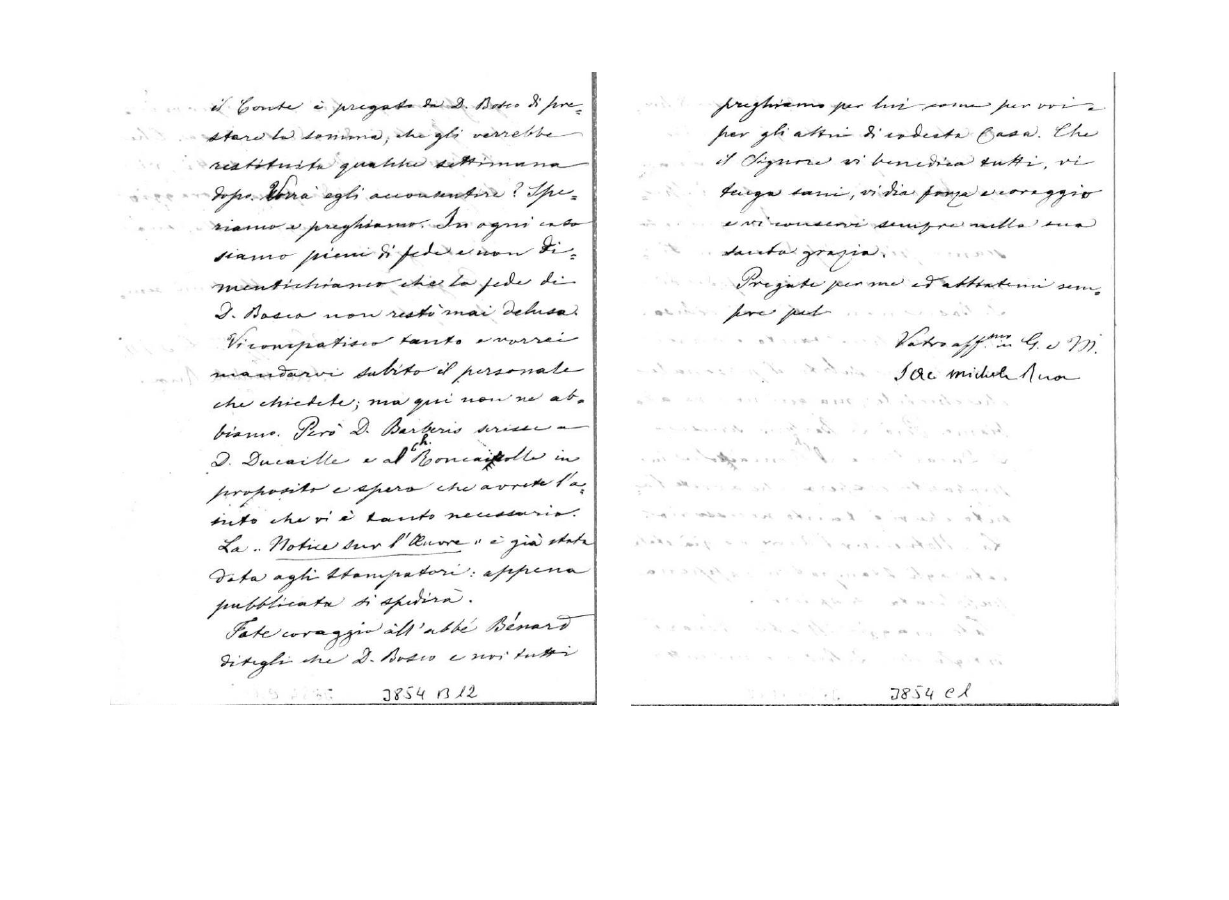 il Conte è pregato da D. Bosco di pre=
stare la somma, che gli verrebbe
restituita qualche settimana
dopo. Vorrà egli acconsentire? Spe=
riamo e preghiamo. In ogni caso
siamo pieni di fede e non di=
mentichiamo che la fede di
D. Bosco non restò mai delusa.
Vi compatisco tanto e vorrei
mandarvi subito il personale
che chiedete; ma qui non ne ab=
biamo. Però D. Barberis scrisse a
D. Ducaille e al Ch. in
proposito e spero che avrete l'a=
iuto che vi è tanto necessario.
La „ Notice sur l'Œuvre " è già stata
data agli stampatori: appena
pubblicata si spedirà.
Fate coraggio all'abbé Bénard
ditegli che D. Bosco e noi tutti
J854 B 12
preghiamo per lui come per voi e
per gli altri di codesta Casa. Che
il Signore vi benedica tutti, vi
tenga sani, vi dia forza e coraggio
e vi conservi sempre nella sua
santa grazia.
Pregate per me ed abbiatemi sem=
pre pel
Vostro aff.mo in G. e M.
Sac Michele Rua
J854 C 1